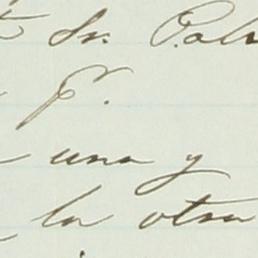 Sr. Pal
F.
una y
la otra